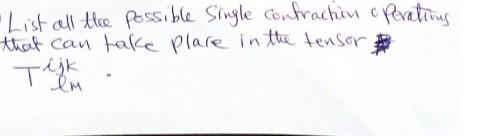 List all the possible Single contraction operations
that can take place in the tensor
T^{ijk}_{lm} .